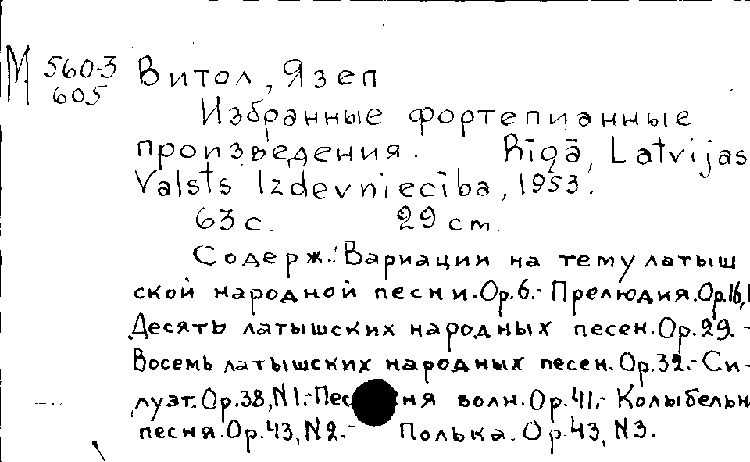 М 560-3 Витол, Язеп
605
Избранные фортепианные
произведения. Rīgā, Latvijas
Valsts Izdevniecība, 1953.
63 с. 29 cm.
Содерж.: Вариации на тему латыш
ской народной песни. Ор.6.- Прелюдия. Ор.16,1
Десять латышских народных песен. Ор.29.-
Восемь латышских народных песен. Ор.32.- Си-
луэт. Ор.38, N1.- Пес ня волн. Ор.41.- Колыбельн
песня. Ор.43, N2.- Полька. Ор 43, N3.